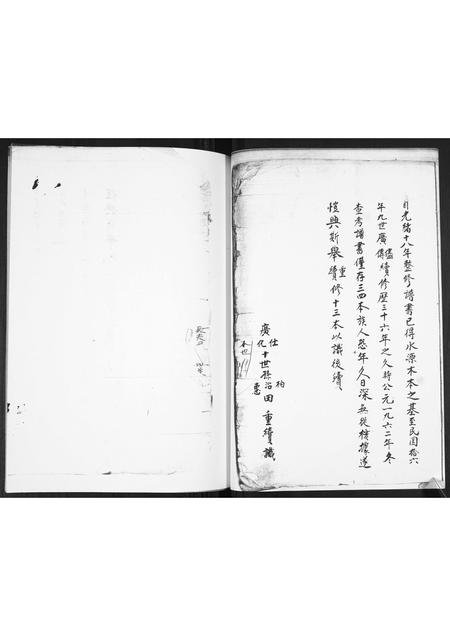 自光緒十八年整修譜書已得水源木本之基至民国拾六
年九世廣儒續修歷三十六年之久時公元一九六二年冬
查考譜書僅存三四本族人愁年久日深無從稽據遂
愷興斯舉重續修十三本以識後續
廣仕
化十世孫治田重續識